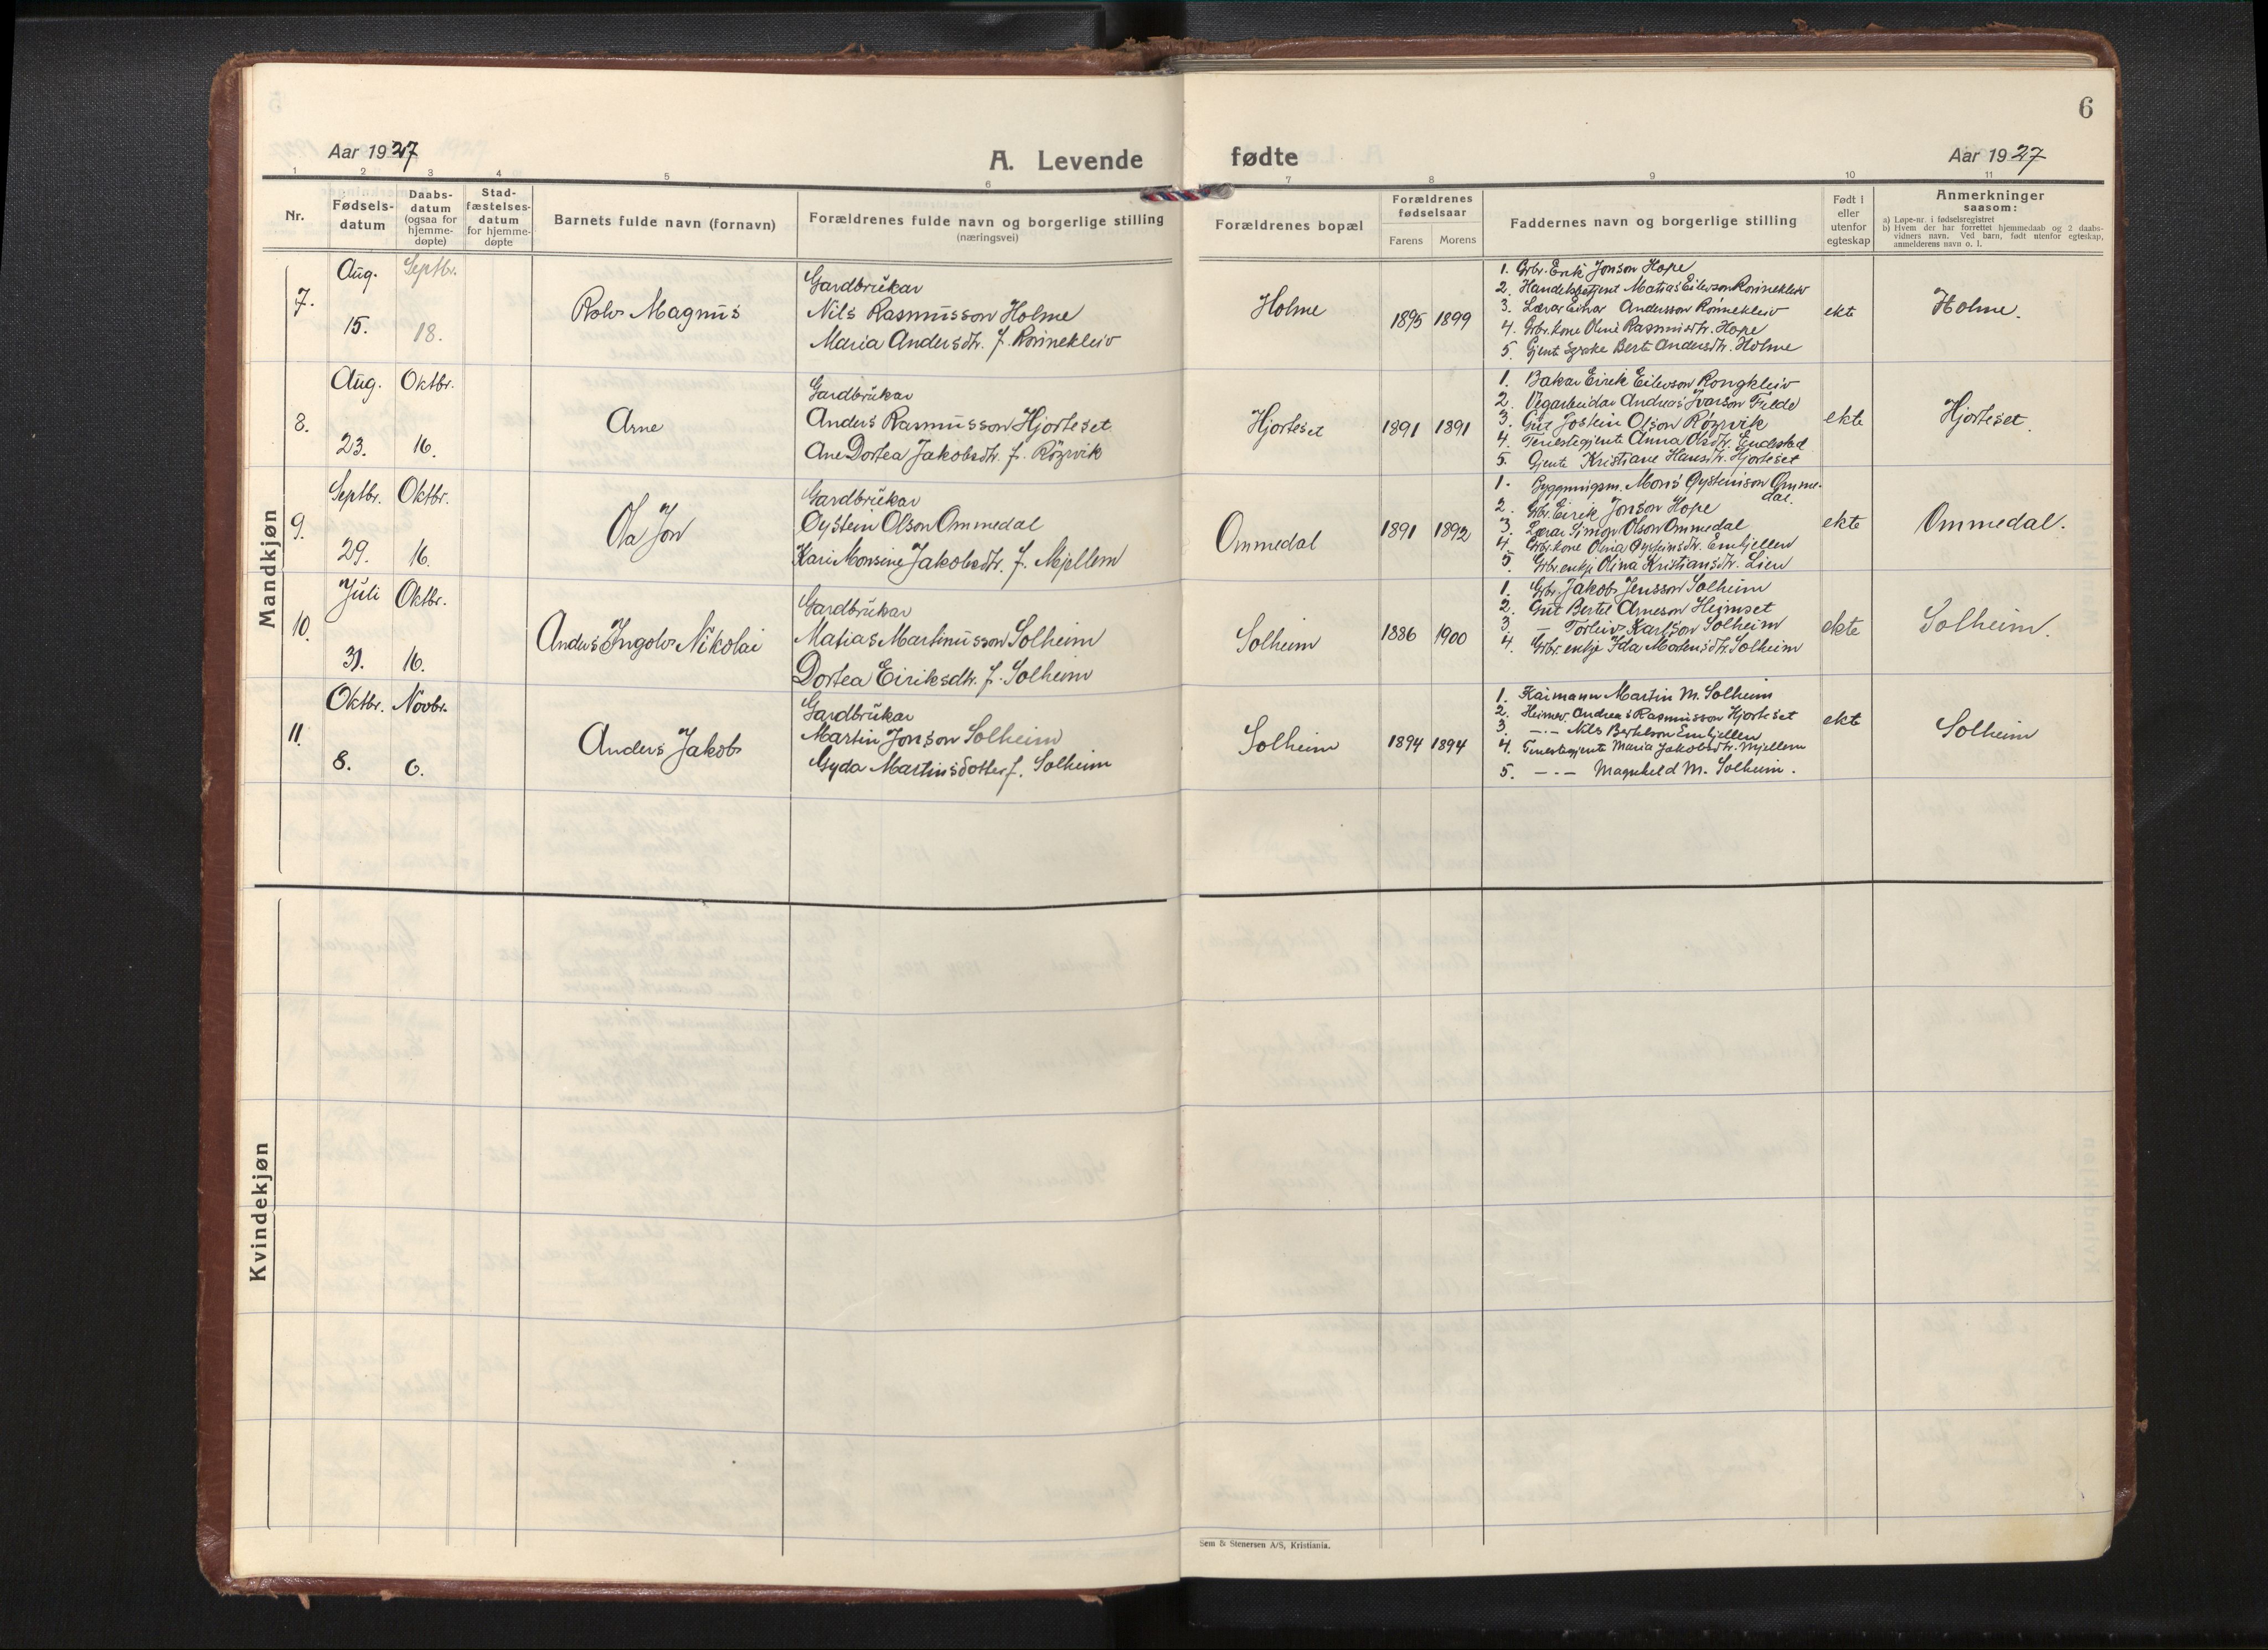 6
Aar 1927
A. Levende fødte
Aar 1927
1 2 3 4 5 6 7 8 9 10 11
Nr.
Fødsels-
datum
Daabs-
datum
(ogsaa for
hjemme-
døpte)
Stad-
fæstelses-
datum
for hjemme-
døpte
Barnets fulde navn (fornavn)
Forældrenes fulde navn og borgerlige stilling
(næringsvei)
Forældrenes bopæl
Forældrenes
fødselsaar
Farens Morens
Faddernes navn og borgerlige stilling
Født i
eller
utenfor
egteskap
Anmerkninger
saasom:
a) Løpe-nr. i fødselsregistret
b) Hvem der har forrettet hjemmedaab og 2 daabs-
vidners navn. Ved barn, født utenfor egteskap,
anmelderens navn o. l.
Mandkjøn
7.
Aug.
15.
Septbr.
18.
Rolv Magnus
Gardbrukar
Nils Rasmusson Holme
Maria Andersdtr. f. Rinnekleiv
Holme
1895 1899
1. Gbr. Erik Jonson Hope
2. Handelsbetjent Matias Eilevson Rinnekleiv
3. Lærar Einar Andersson Rinnekleiv
4. Gbr. kone Oline Rasmusdtr. Hope
5. Gjenta Berta Andersdtr. Holme
ekte
Holme.
8.
Aug.
23.
Oktbr.
16.
Arne
Gardbrukar
Anders Rasmusson Hjorteset
Ane Dortea Jakobsdtr. f. Røzvik
Hjorteset
1891 1891
1. Bakar Eirik Eilevson Rongkleiv
2. Vegarbeidar Andreas Ivarson Felde
3. Gut Jostein Olson Røzvik
4. Tenestegjente Anna Olsdtr. Endestad
5. Gjente Kristiane Hansdtr. Hjorteset
ekte
Hjorteset.
9.
Septbr.
29.
Oktbr.
16.
Ola Jon
Gardbrukar
Oystein Olson Ommedal
Kari Monsine Jakobsdtr. f. Mjellem
Ommedal
1891 1892
1. Bygningsm. Mons Oysteinson Omme-
dal.
2. Gbr. Eirik Jonson Hope
3. Lærar Simon Olson Ommedal
4. Gbr. kone Olina Oysteinsdtr. Emhjellen
5. Gbr. enkje Olina Kristiansdtr. Lien
ekte
Ommedal.
10.
Juli
31.
Oktbr.
16.
Anders Ingolv Nikolai
Gardbrukar
Matias Martinusson Solheim
Dortea Eiriksdtr. f. Solheim
Solheim
1886 1900
1. Gbr. Jakob Jensson Solheim
2. Gut Bertel Arneson Heimset
3. — Torleiv Karlson Solheim
4. Gbr. enkje Ida Martensdtr. Solheim
ekte
Solheim.
11.
Oktbr.
8.
Novbr.
6.
Anders Jakob
Gardbrukar
Martin Jonson Solheim
Gyda Martinsdotter f. Solheim
Solheim
1894 1894
1. Kaimann Martin M. Solheim
2. Heimev. Andreas Rasmusson Hjorteset
3. —·— Nils Bertelson Emhjellen
4. Tenestegjente Maria Jakobsdtr. Mjellem
5. —·— Magnhild M. Solheim.
ekte
Solheim
Kvindekjøn
Sem & Stenersen A/S, Kristiania.